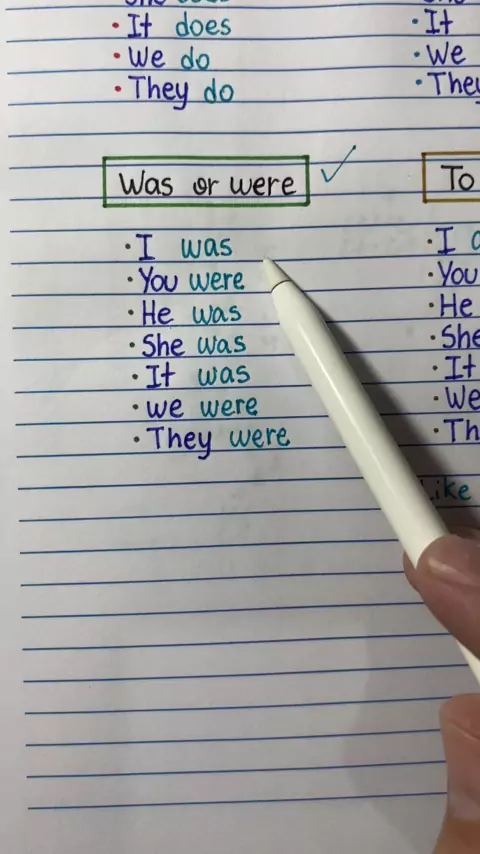 • It does
• We do
• They do
• It
• We
• They
Was or were
• I was
• You were
• He was
• She was
• It was
• we were
• They were
To
• I
• You
• He
• She
• It
• We
• Th
Like